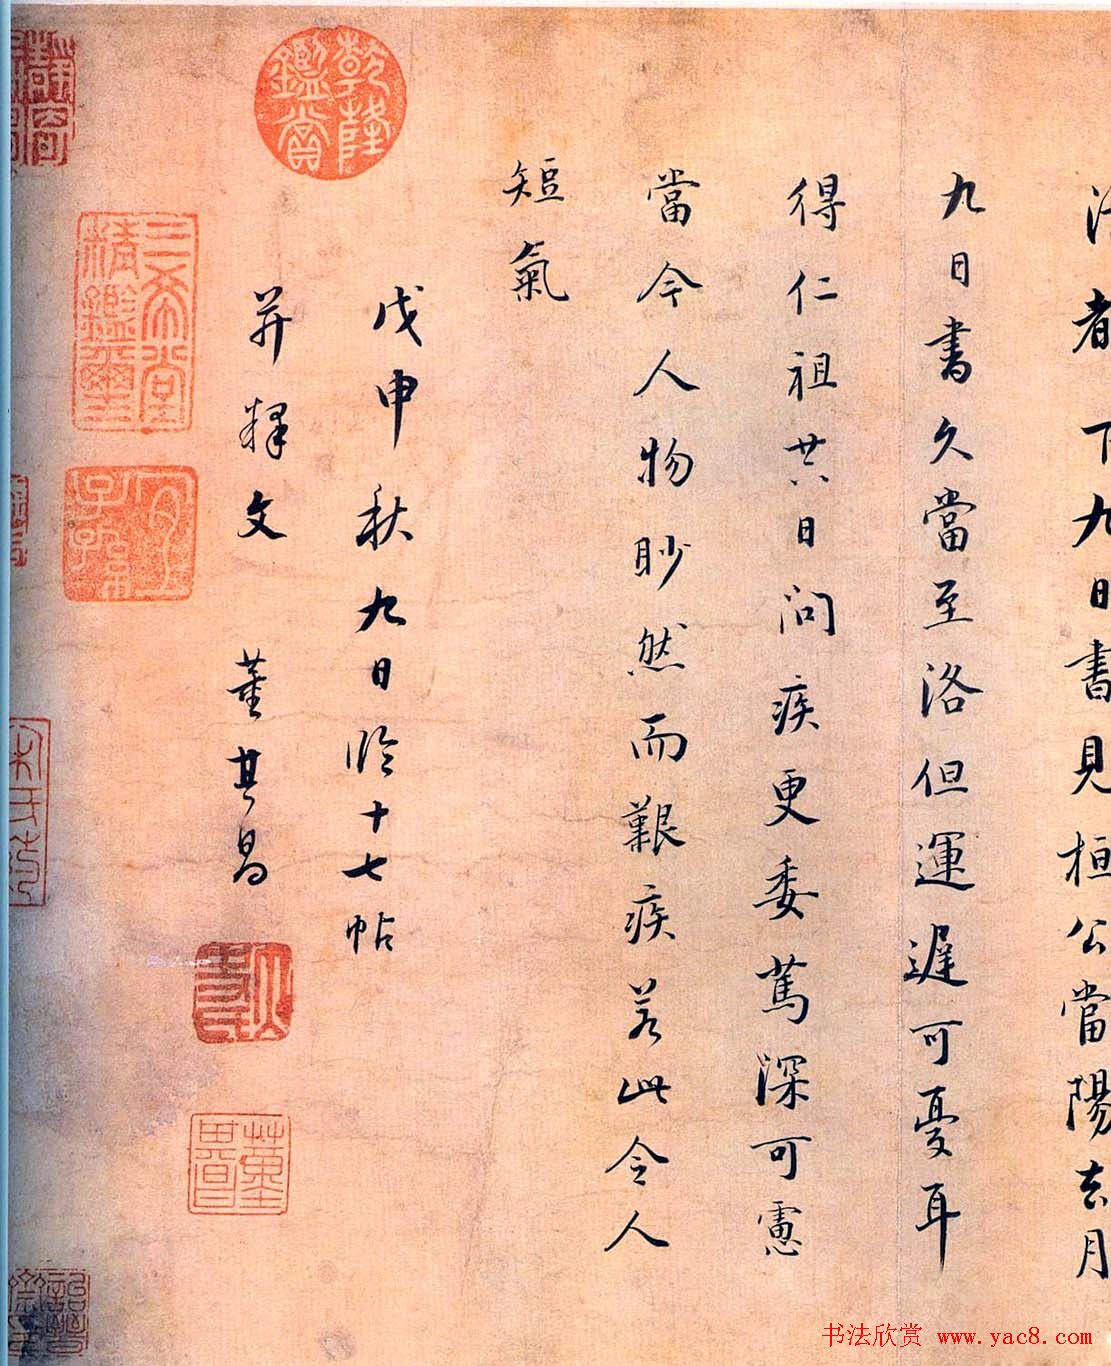 洛者下九日書見桓公當陽去月
九日書久當至洛但運遲可憂耳
得仁祖廿六日問疾更委篤深可慮
當今人物眇然而艱疾若此令人
短氣
戊申秋九日臨十七帖
并釋文 董其昌
乾隆鑑賞
三希堂精鑑璽
宜子孫
董其昌
書法欣赏 www.yac8.com